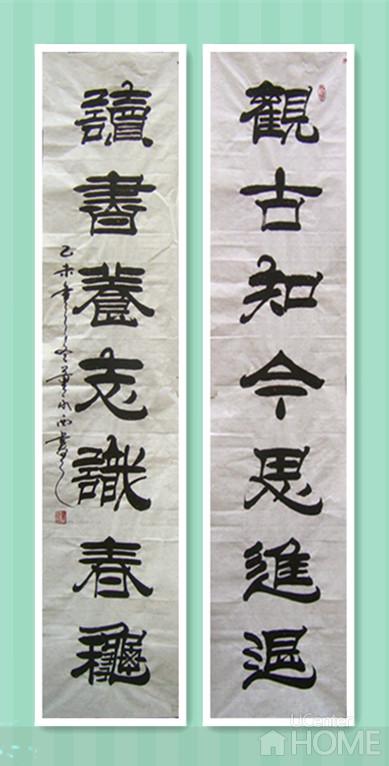 觀古知今思進退
讀書養志識春龝
UCenter
HOME